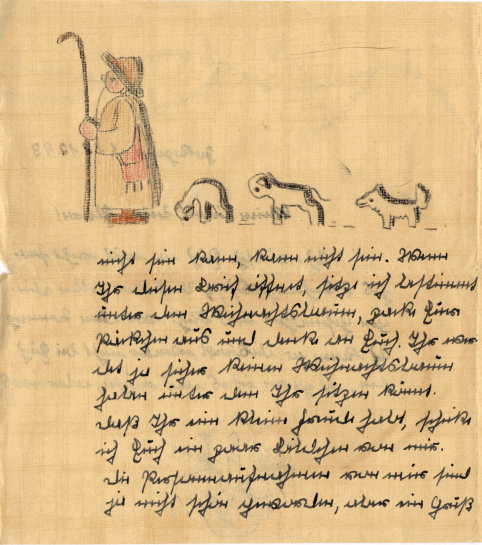 nicht sein kann, kann nicht sein. Wenn
Ihr diesen Brief öffnet, sitze ich bestimmt
unter dem Weihnachtsbaum, packe Eure
Päckchen aus und denke an Euch. Ihr wer-
det ja sicher keinen Weihnachtsbaum
haben unter dem Ihr sitzen könnt.
Daß Ihr eine kleine Freude habt, schicke
ich Euch ein paar Bildchen von mir.
Die Personenaufnahmen von mir sind
ja nicht schön geworden, aber ein Gruß